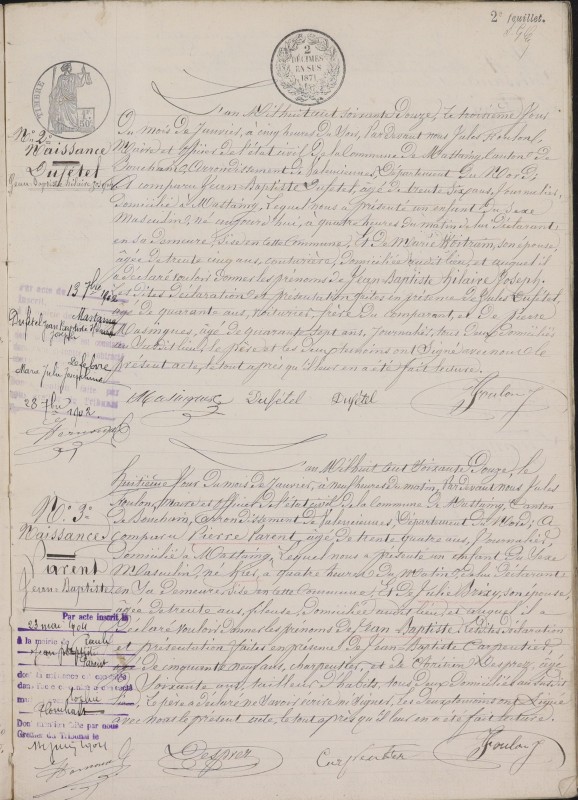 2e feuillet.
TIMBRE
2
DÉCIMES
EN SUS
1871
N° 2
Naissance
Dufétel
Jean Baptiste hilaire Joseph
L'an Mil huit cent soixante Douze, le troisième Jour
Du mois de Janvier, à cinq heures du soir, Pardevant nous Jules Foulon,
Maire et officier de l'état civil de la commune de Mastaing, canton de
Bouchain, Arrondissement de Valenciennes, Département du Nord,
est comparu Jean Baptiste Dufétel, âgé de trente six ans, Journalier,
Domicilié à Mastaing, Lequel nous a présenté un enfant du sexe
Masculin, né aujourd'hui, à quatre heures du matin, de lui Déclarant
en sa demeure, sise en cette commune, Et de Marie Wortram, son épouse,
âgée de trente cinq ans, couturière, domiciliée audit lieu, et auquel il
a déclaré vouloir donner les prénoms de Jean Baptiste hilaire Joseph.
Les dites Déclaration et présentation faites en présence de Jules Dufétel,
âgé de quarante ans, frère du comparant, et de Pierre
Masingues, âgé de quarante sept ans, Journalier, tous deux domiciliés
au susdit lieu, le père et les deux témoins ont signé avec nous le
présent acte, tout après qu'il leur en a été fait lecture.
Par acte du
13 7bre 1902
Mastaing
Dufétel Jean Baptiste Hilaire
Joseph
Lefebvre
Marie Julie Joséphine
28 7bre 1902
Masingue Dufétel Dufétel Foulon J
N° 3
Naissance
Parent
Jean Baptiste
L'an Mil huit cent Soixante Douze, le
huitième Jour du mois de Janvier, à neuf heures du matin, Pardevant nous Jules
Foulon, Maire et officier de l'état civil de la commune de Mastaing, Canton
de Bouchain, Arrondissement de Valenciennes, Département du Nord, a
comparu Pierre Parent, âgé de trente quatre ans, Journalier,
Domicilié à Mastaing, Lequel nous a présenté un enfant du sexe
Masculin, né hier, à quatre heures du matin, de lui Déclarant
en sa demeure sise en cette commune, Et de Julie son épouse,
âgée de trente ans, fileuse, Domiciliée audit lieu, et auquel il a
déclaré vouloir donner les prénoms de Jean Baptiste. Les dites Déclaration
et présentation faites en présence de Jean Baptiste Carpentier,
âgé de cinquante neuf ans, charpentier, et de Desprez, âgé
de soixante ans, tailleur d'habits, tous deux Domiciliés au susdit
lieu, le père a déclaré ne savoir écrire ni signer, les deux témoins ont signé
avec nous le présent acte, tout après qu'il leur en a été fait lecture.
Par acte inscrit le
23 mai 1904
à la mairie de
Joseph
Parent
Sophie
Greffier du Tribunal le
1904
Desprez Carpentier Foulon J